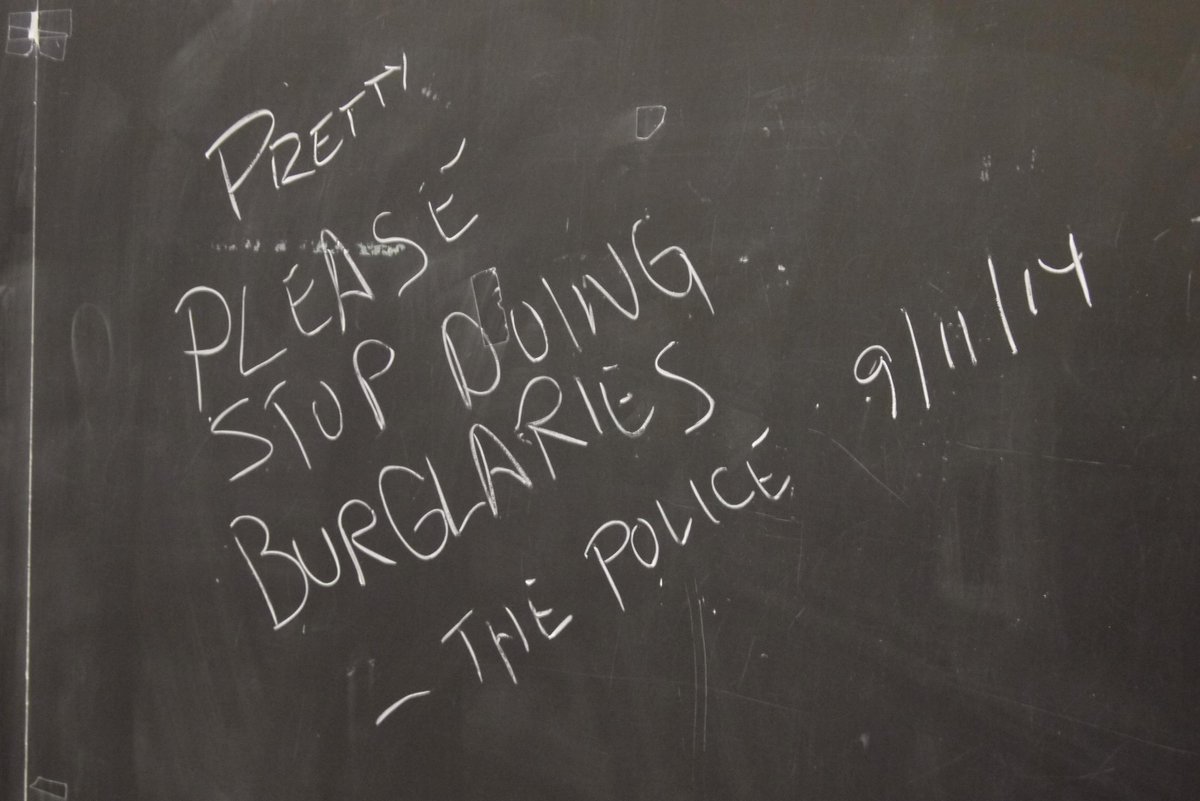 PRETTY
PLEASE
STOP DOING
BURGLARIES
— THE POLICE
9/11/14